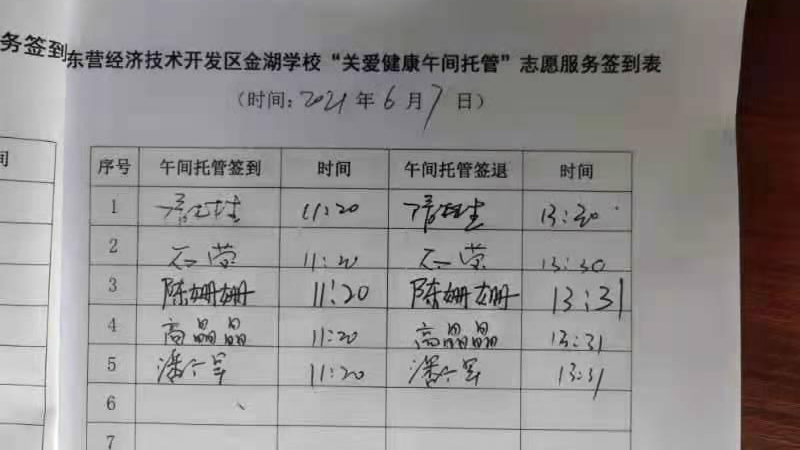 务签到
东营经济技术开发区金湖学校“关爱健康午间托管”志愿服务签到表
（时间：2021年6月7日）
间
序号 午间托管签到 时间 午间托管签退 时间
1 11:20 13:30
2 石莹 11:20 石莹 13:30
3 陈姗姗 11:20 陈姗姗 13:31
4 高晶晶 11:20 高晶晶 13:31
5 潘 军 11:20 潘 军 13:31
6
7